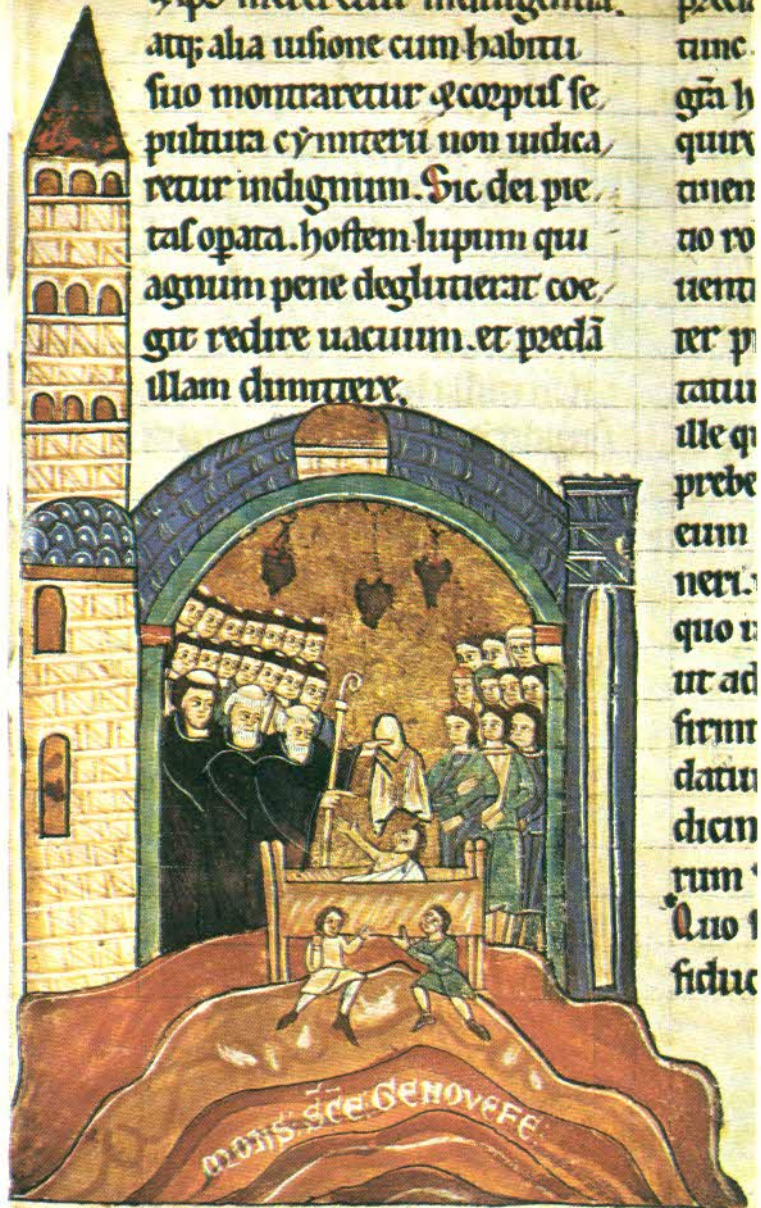 indulgentia.
atq; alia uisione cum habitu
suo montraretur & corpus se
pultura cymiterii non iudica
retur indignum. Sic dei pie
tas opata. hostem lupum qui
agnum pene deglutierat coe
git redire uacuum. et predã
illam dimittere.
tunc
gr̃a h
quir
tinen
tio ro
uent
ter p
tatu
ille q
prebe
eum
neri.
quo
ut ad
firmit
datu
dicin
rum
Quo
fiduc
MONS S̃C̃E GENOVEFE